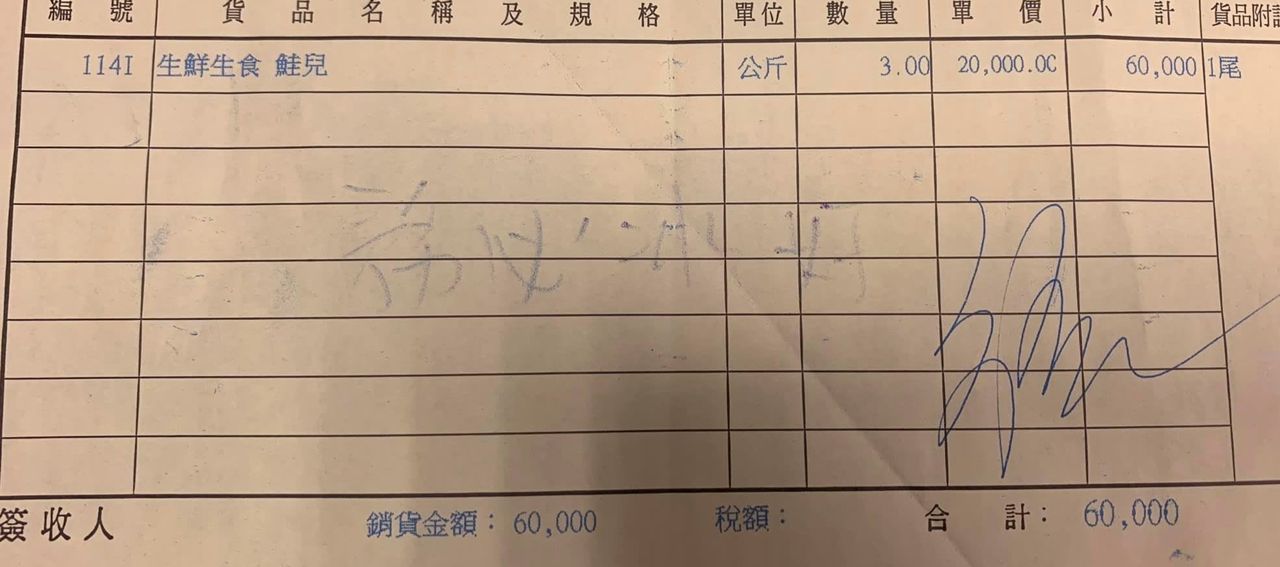 編號 貨品名稱及規格 單位 數量 單價 小計 貨品附註
114I 生鮮生食 鮭兒 公斤 3.00 20,000.00 60,000 1尾
簽收人 銷貨金額：60,000 稅額： 合計：60,000